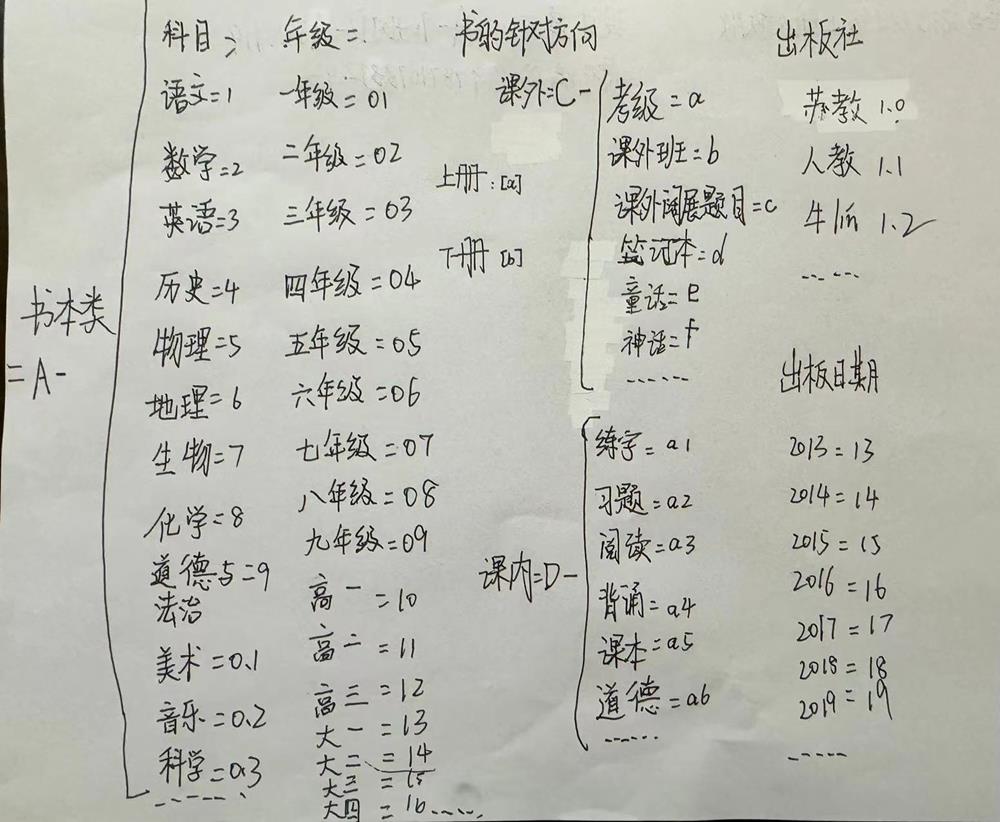 书本类
=A-
科目:
语文=1
数学=2
英语=3
历史=4
物理=5
地理=6
生物=7
化学=8
道德与=9
法治
美术=0.1
音乐=0.2
科学=0.3
------
年级=:
一年级=01
二年级=02
三年级=03
四年级=04
五年级=05
六年级=06
七年级=07
八年级=08
九年级=09
高一=10
高二=11
高三=12
大一=13
大二=14
大三=15
大四=16......
书的针对方向
上册:[a]
下册[b]
课外=C-
考级=a
课外班=b
课外阔展题目=c
笔记本=d
童话=e
神话=f
------
课内=D-
练字=a1
习题=a2
阅读=a3
背诵=a4
课本=a5
道德=a6
------
出板社
苏教 1.0
人教 1.1
牛lin 1.2
-----
出板日期
2013=13
2014=14
2015=15
2016=16
2017=17
2018=18
2019=19
-----